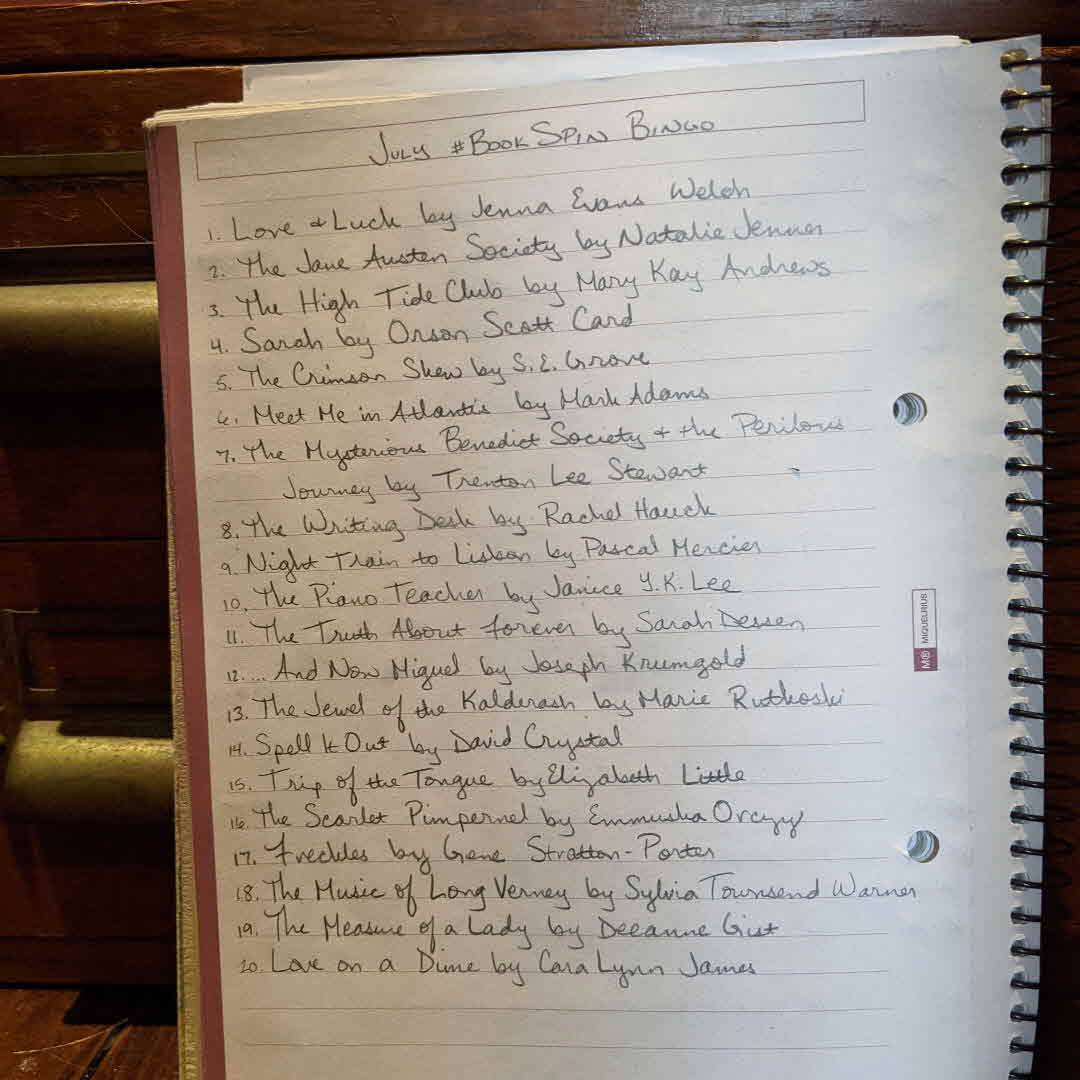 July #BookSpin Bingo
1. Love & Luck by Jenna Evans Welch
2. The Jane Austen Society by Natalie Jenner
3. The High Tide Club by Mary Kay Andrews
4. Sarah by Orson Scott Card
5. The Crimson Skew by S.E. Grove
6. Meet Me in Atlantis by Mark Adams
7. The Mysterious Benedict Society & the Perilous
Journey by Trenton Lee Stewart
8. The Writing Desk by Rachel Hauck
9. Night Train to Lisbon by Pascal Mercier
10. The Piano Teacher by Janice Y.K. Lee
11. The Truth About Forever by Sarah Dessen
12. ... And Now Miguel by Joseph Krumgold
13. The Jewel of the Kalderash by Marie Rutkoski
14. Spell It Out by David Crystal
15. Trip of the Tongue by Elizabeth Little
16. The Scarlet Pimpernel by Emmuska Orczy
17. Freckles by Gene Stratton-Porter
18. The Music of Long Verney by Sylvia Townsend Warner
19. The Measure of a Lady by Deeanne Gist
20. Love on a Dime by Cara Lynn James
M® MIQUELRIUS